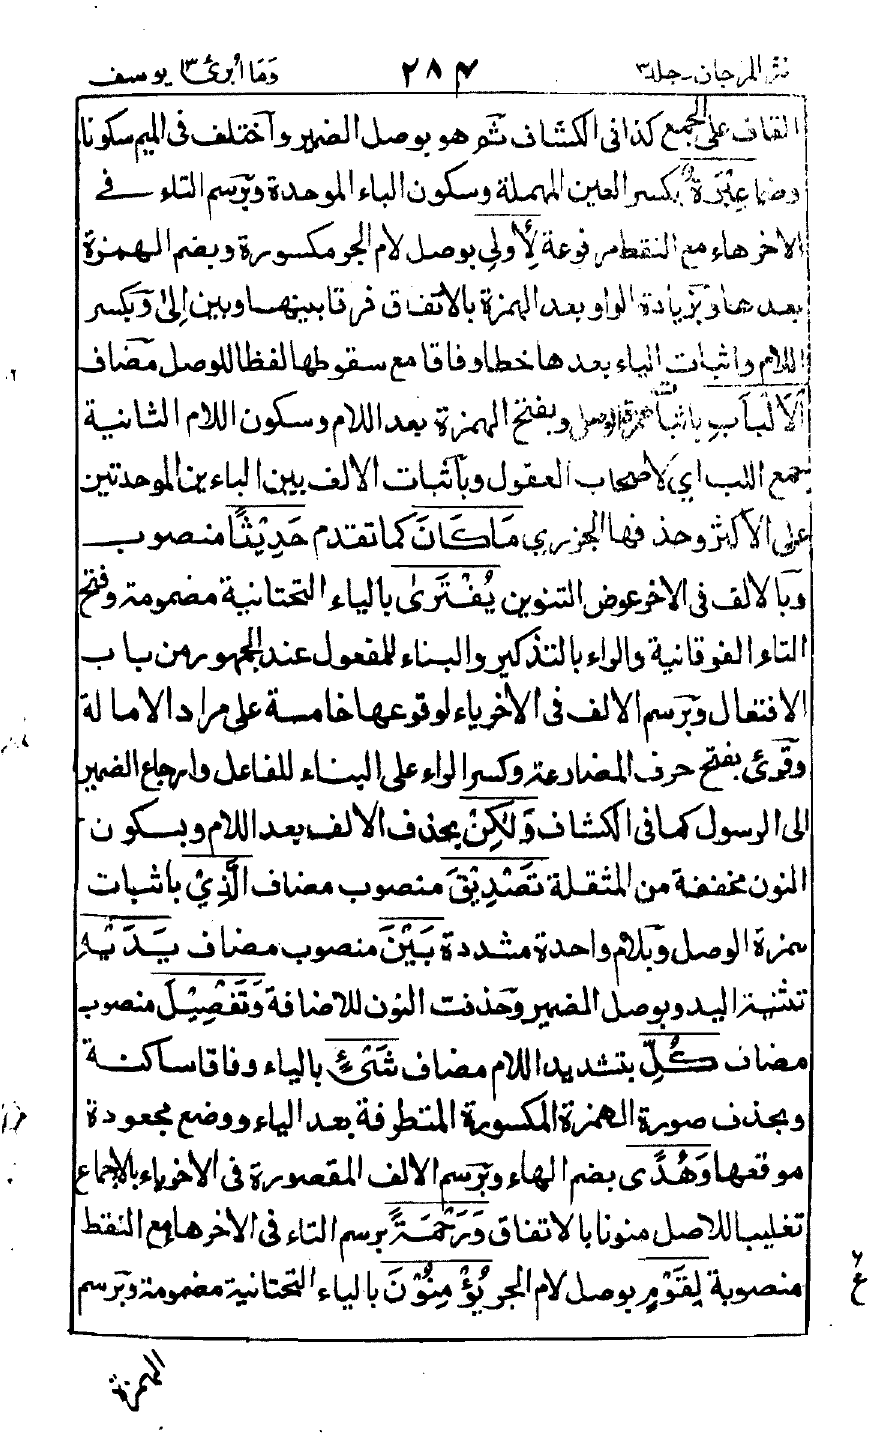 نثر المرجان ـ جلد ٣ ٢٨٧ وَمَا أُبَرِّئُ ١٣ يوسف
القاف على الجمع كذا فى الكشاف ثم هو بوصل الضمير واختلف فى الميم سكونا
وضما عِبْرَةٌ بكسر العين المهملة وسكون الباء الموحدة وبرسم التاء فے
الاخر هاء مع النقط مرفوعة لِأُولِي بوصل لام الجر مكسورة وبضم الهمزة
بعدها وبزيادة الواو بعد الهمزة بالاتفاق فرقا بينها وبين إلىٰ وبكسر
اللام واثبات الياء بعدها خطا وفاقا مع سقوطها لفظا للوصل مضاف
الْأَلْبَابِ باثبات همزة الوصل وبفتح الهمزة بعد اللام وسكون اللام الثانية
جمع اللب اي لاصحاب العقول وباثبات الالف بين الباءين الموحدتين
على الاكثر وحذفها الجزري مَا كَانَ كما تقدم حَدِيْثًا منصوب
وبالالف فى الاخر عوض التنوين يُفْتَرٰى بالياء التحتانية مضمومة وفتح
التاء الفوقانية والراء بالتذكير والبناء للمفعول عند الجمهور من باب
الافتعال وبرسم الالف فى الاخر ياء لوقوعها خامسة على مراد الامالة
وقرئ بفتح حرف المضارعة وكسر الراء على البناء للفاعل وارجاع الضمير
الى الرسول كما فى الكشاف وَلٰكِنْ بحذف الالف بعد اللام وبسكون
النون مخففة من المثقلة تَصْدِيْقَ منصوب مضاف الَّذِيْ باثبات
همزة الوصل وبلام واحدة مشددة بَيْنَ منصوب مضاف يَدَيْهِ
تثنية اليد وبوصل الضمير وحذفت النون للاضافة وَتَفْصِيْلَ منصوب
مضاف كُلِّ بتشديد اللام مضاف شَيْءٍ بالياء وفاقا ساكنة
وبحذف صورة الهمزة المكسورة المتطرفة بعد الياء ووضع مجعودة
موقعها وَهُدًى بضم الهاء وبرسم الالف المقصورة فى الاخر ياء بالاجماع
تغليبا للاصل منونا بالاتفاق وَرَحْمَةً برسم التاء فى الاخر هاء مع النقط
منصوبة لِقَوْمٍ بوصل لام الجر يُؤْمِنُوْنَ بالياء التحتانية مضمومة وبرسم
٦
ع
الهمزة